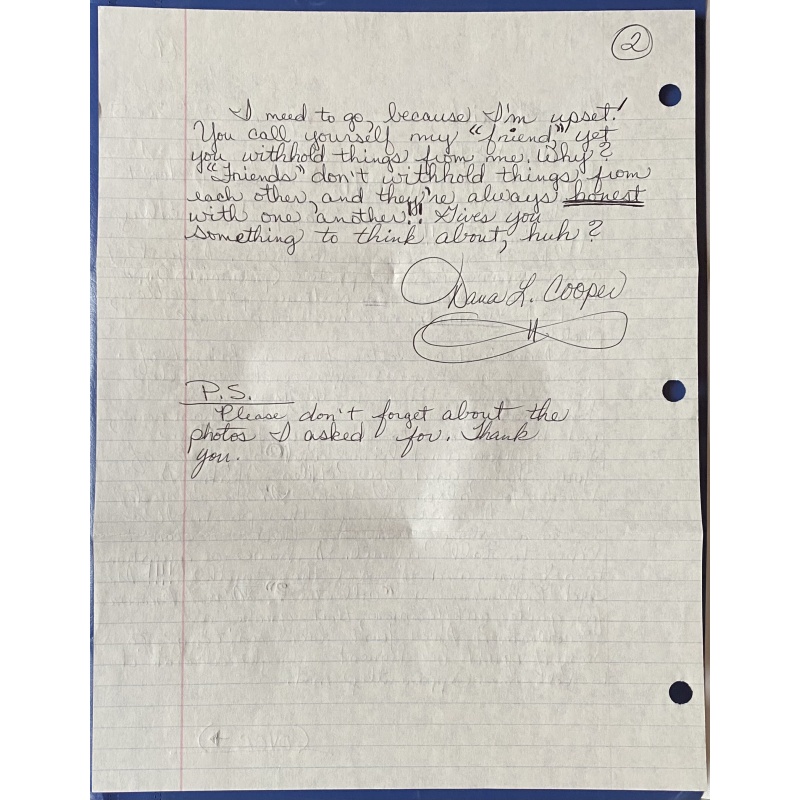 2
I need to go, because I'm upset!
You call yourself my "friend," yet
you withhold things from me. Why?
"Friends" don't withhold things from
each other, and they're always honest
with one another!! Gives you
something to think about, huh?
Dana L. Cooper
P.S.
Please don't forget about the
photos I asked for. Thank
you.